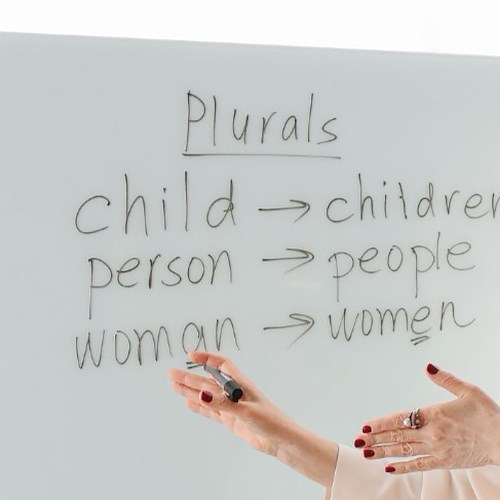 Plurals
child → children
person → people
woman → women